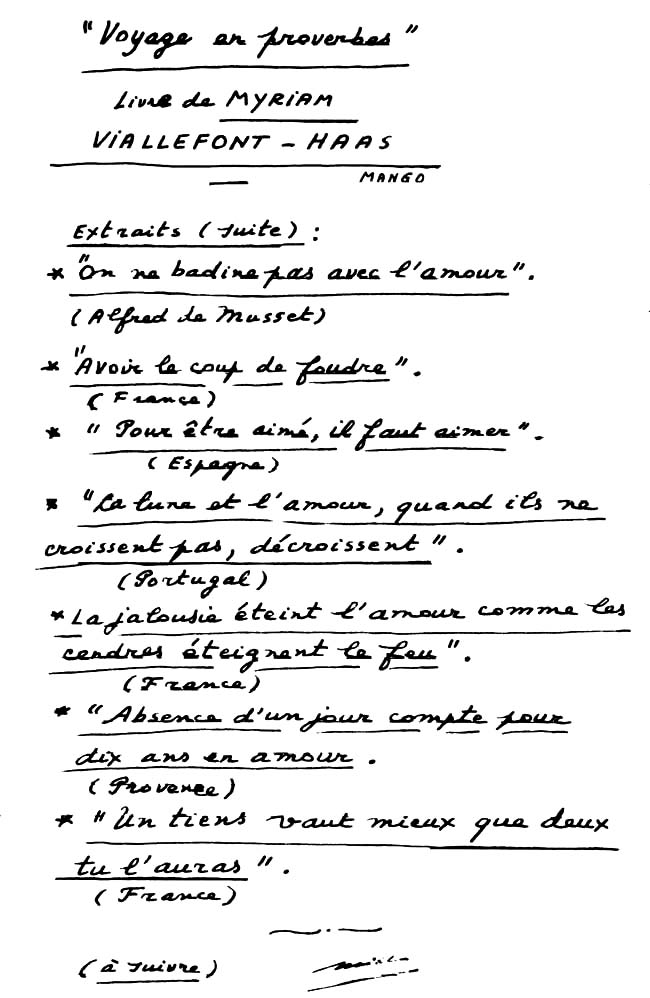 "Voyage en proverbes"
Livre de MYRIAM
VIALLEFONT - HAAS
MANGO
Extraits (suite) :
* "On ne badine pas avec l'amour".
(Alfred de Musset)
* "Avoir le coup de foudre".
(France)
* "Pour être aimé, il faut aimer".
(Espagne)
* "La lune et l'amour, quand ils ne
croissent pas, décroissent".
(Portugal)
* La jalousie éteint l'amour comme les
cendres éteignent le feu".
(France)
* "Absence d'un jour compte pour
dix ans en amour.
(Provence)
* "Un tiens vaut mieux que deux
tu l'auras".
(France)
(à suivre)